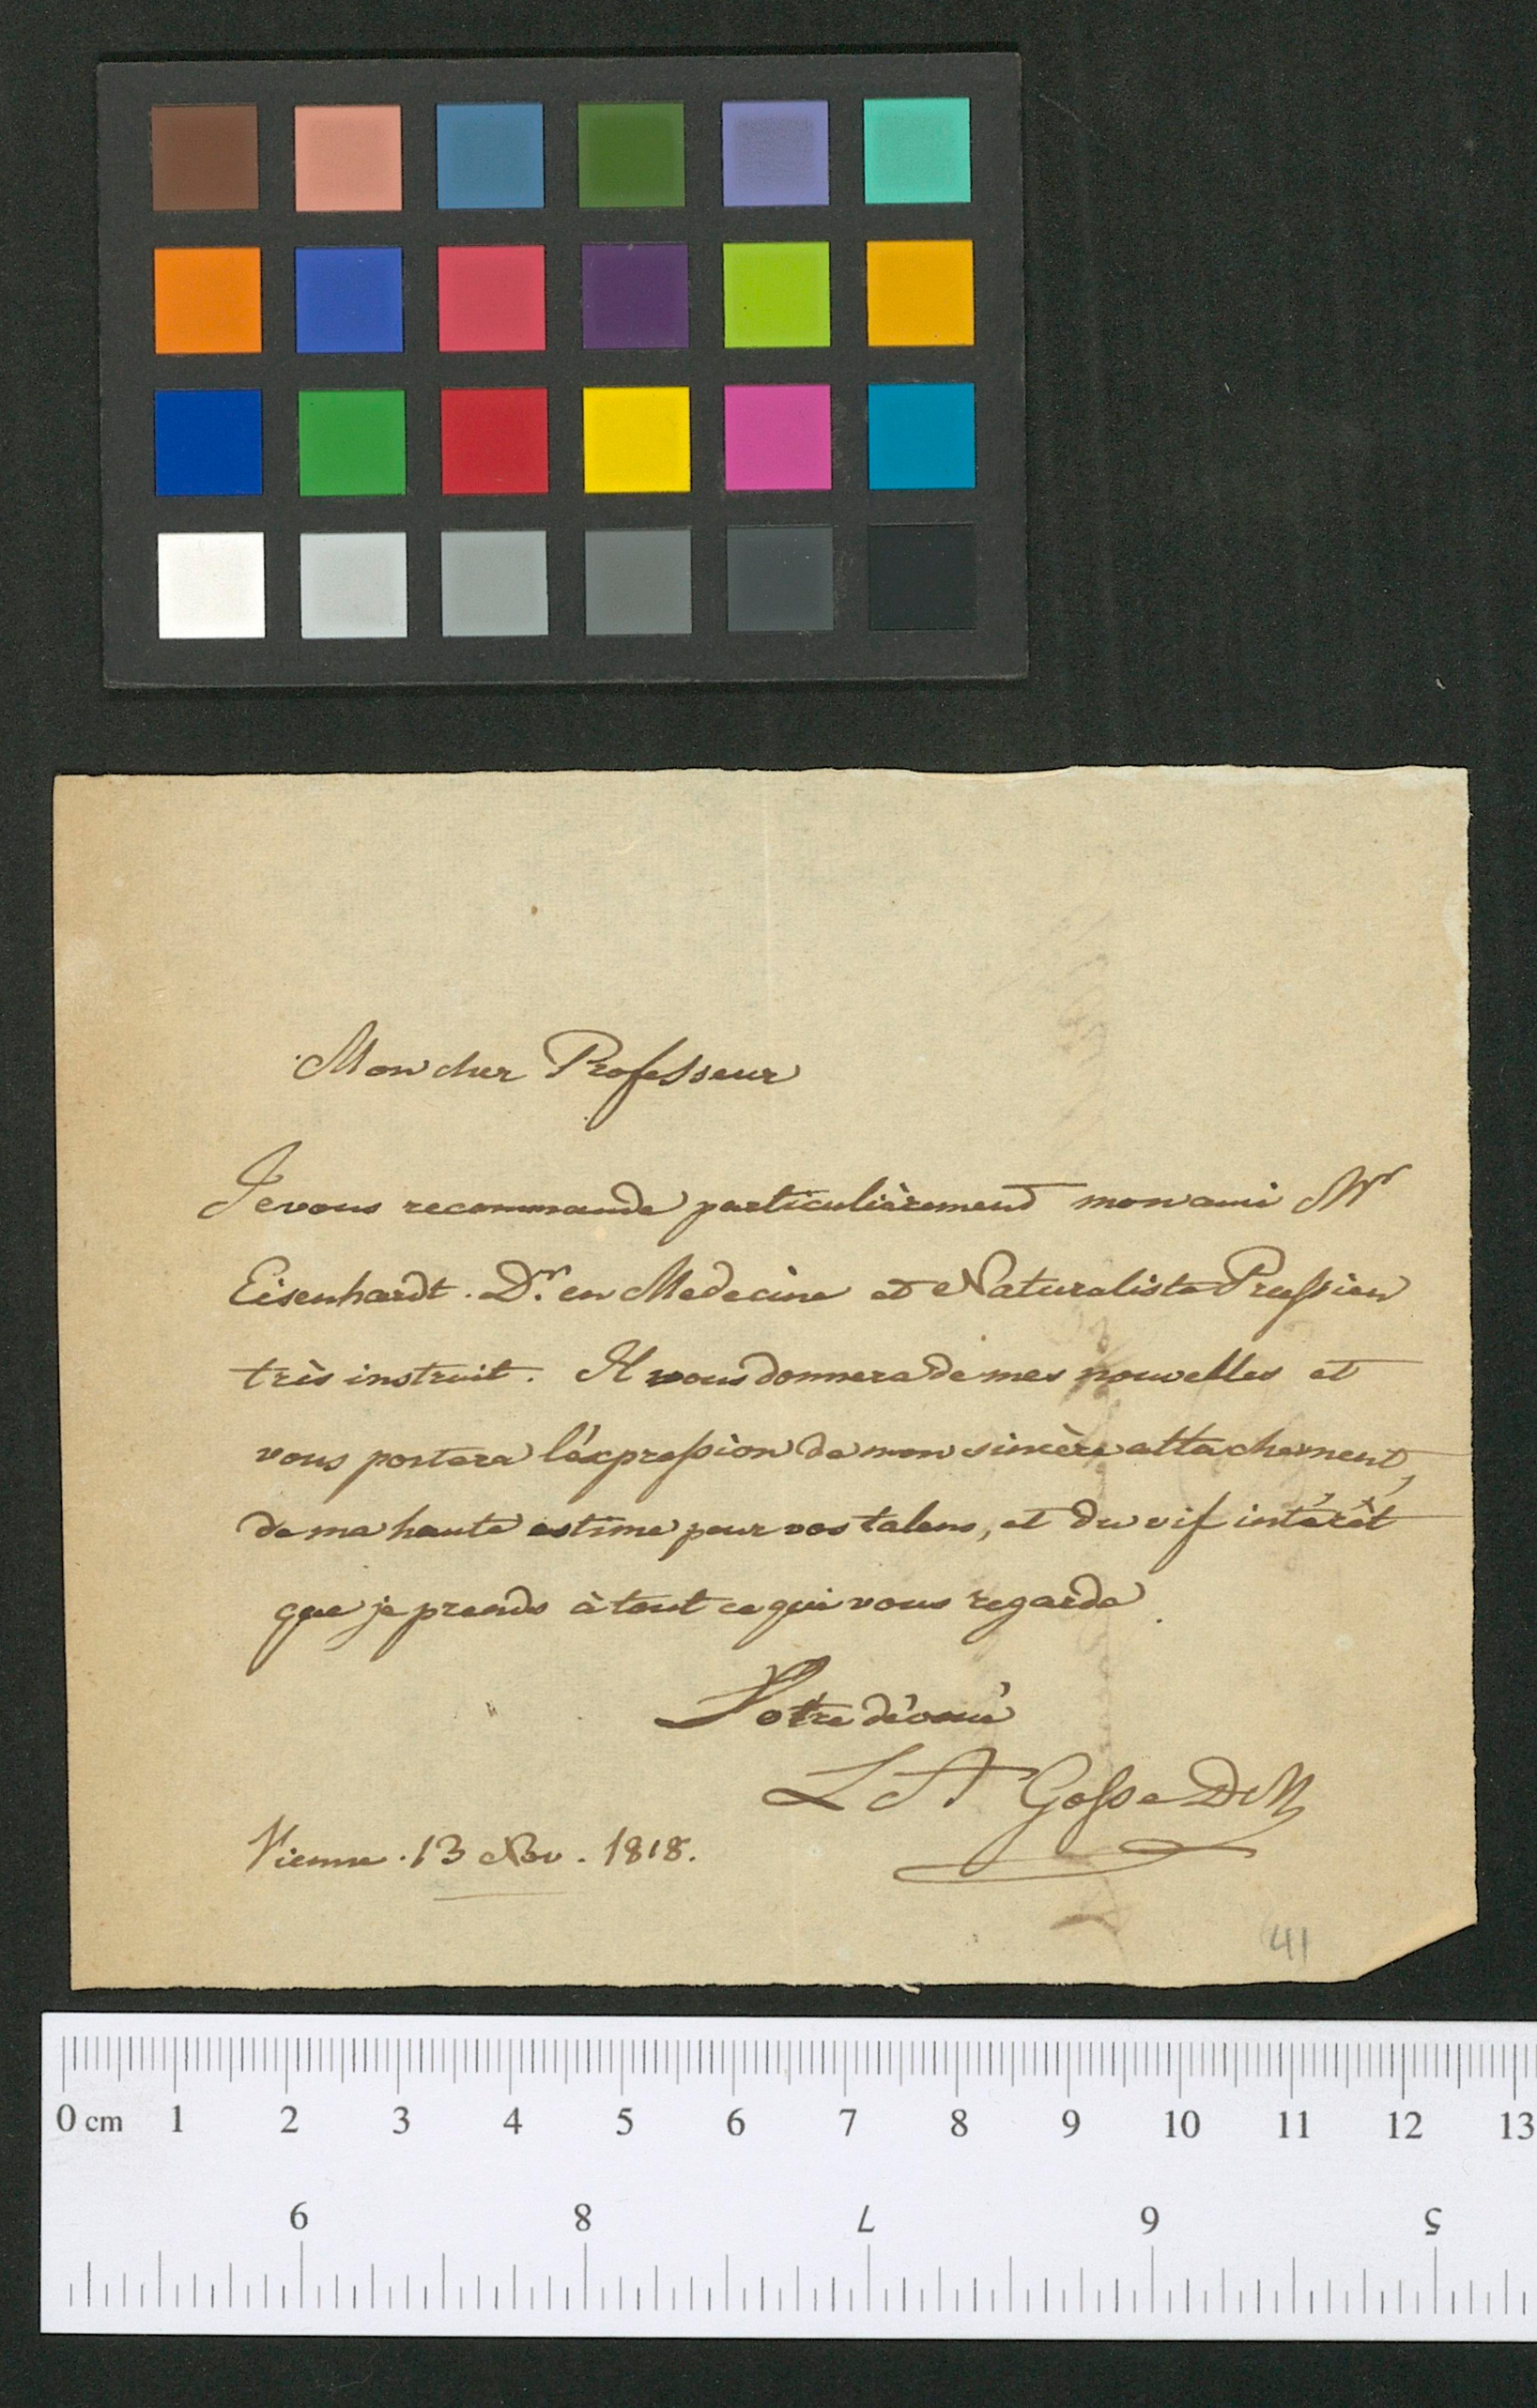 Mon cher Professeur
Je vous recommande particulièrement mon ami Mr
Eisenhardt. Dr. en Medecine et Naturaliste Prussien
très instruit. Il vous donnera de mes nouvelles et
vous portera l'éxpression de mon sincère attachement,
de ma haute estime pour vos talens, et du vif intérêt
que je prends à tout ce qui vous regarde.
Votre dévoué
L A Gosse DM
Vienne. 13 Nov. 1818.
41
0 cm 1 2 3 4 5 6 7 8 9 10 11 12 13
9 8 7 6 5